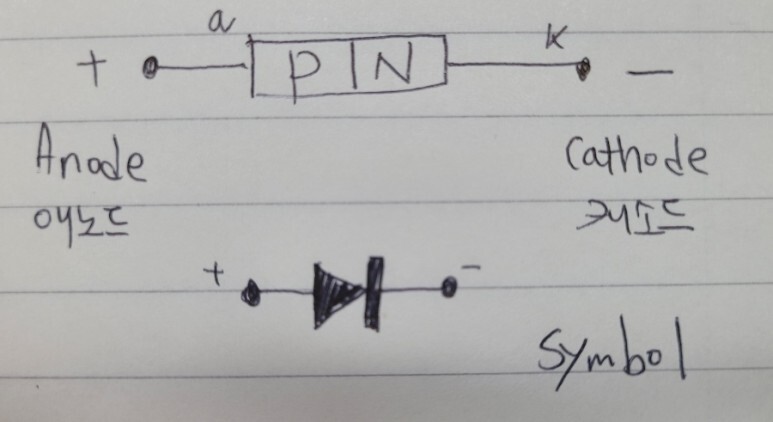 a K
+ P N -
Anode Cathode
애노드 캐소드
+ -
Symbol